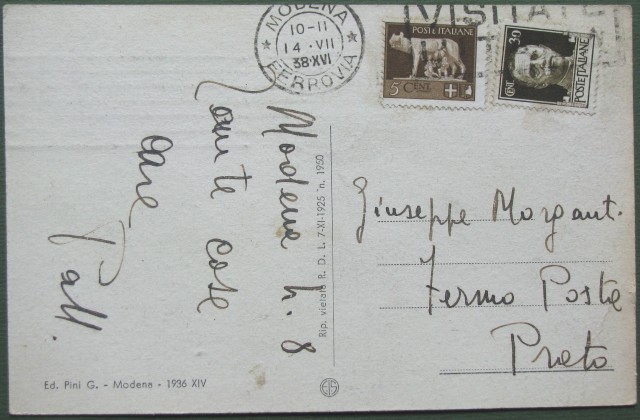 MODENA
10-11
14·VII
38·XVI
FERROVIA
VISITATE
POSTE ITALIANE
5 CENT
CENT 30
POSTE ITALIANE
Modena h. 8
Tante cose
care
Giuseppe Morgant.
Fermo Posta
Prato
Rip. vietata R. D. L. 7-XI-1925 n. 1950
Ed. Pini G. - Modena - 1936 XIV